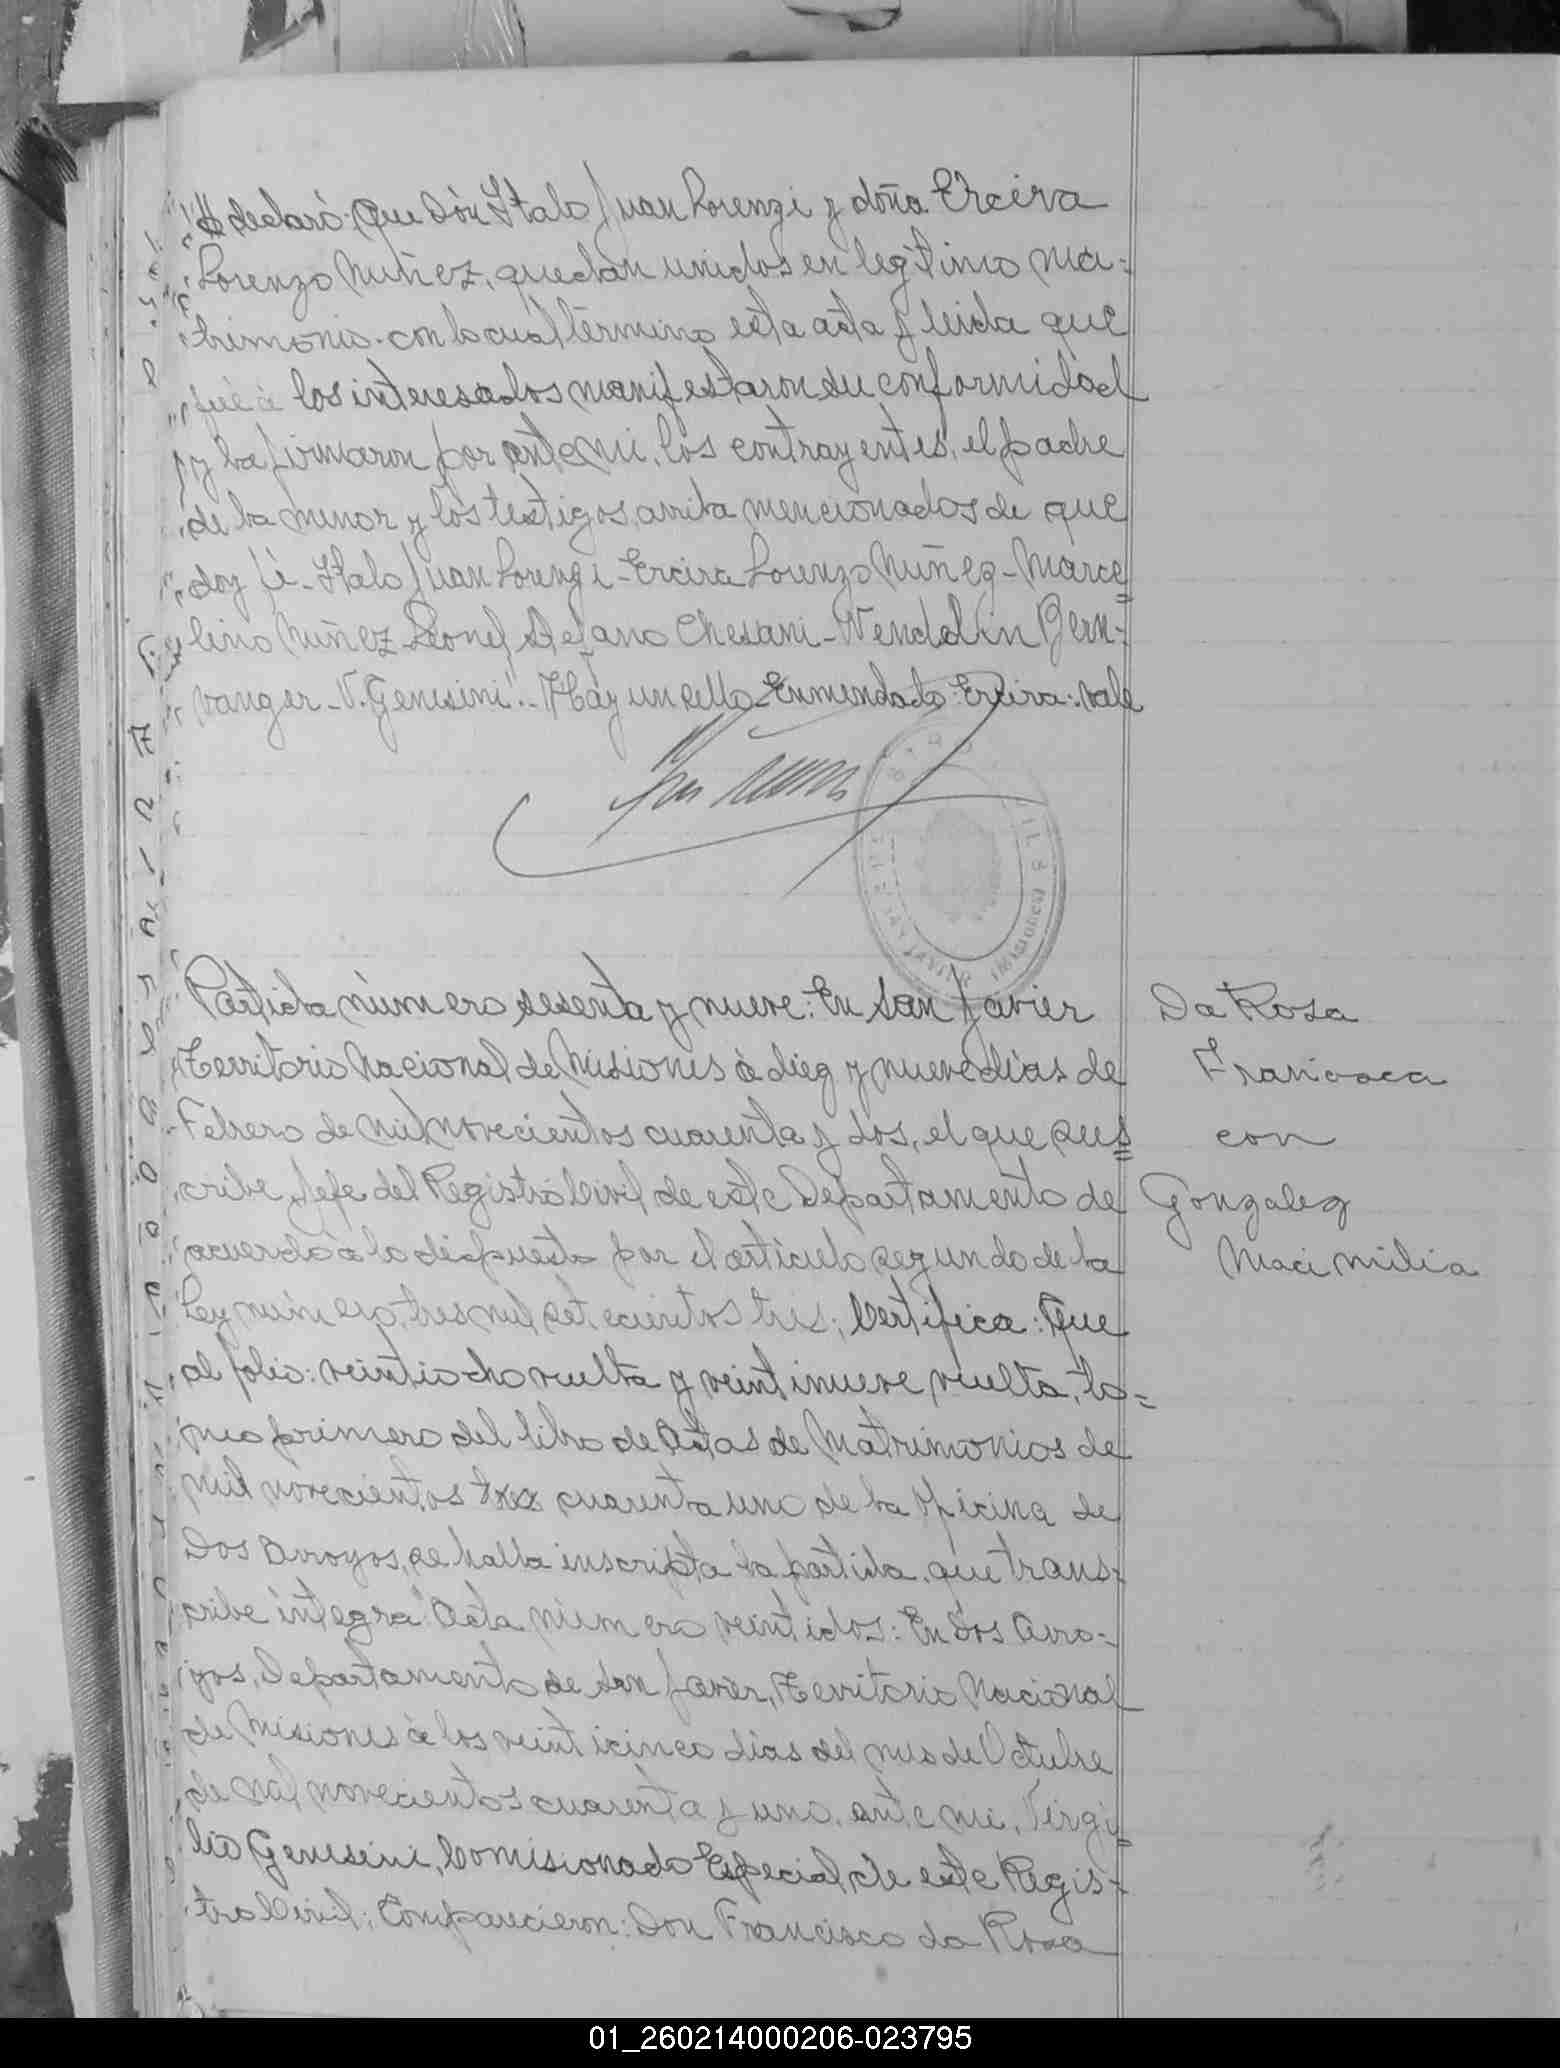 declaró: Que Dón Italo Juan Lorenzi y doña Ercira
Lorenzo Nuñez, quedan unidos en legítimo ma=
trimonio. con lo cuál términо esta acta y leída que
fué á los interesados manifestaron su conformidad
y la firmaron por ante mi, los contrayentes, el padre
de la menor y los testigos arriba mencionados de que
doy fé. Italo Juan Lorenzi - Ercira Lorenzo Nuñez - Marce=
lino Nuñez Leonel Stefano Chesani - Wendelin
V. Genesini". - Hay un sello - Enmendado: Ercira: vale
Partida número sesenta y nueve: En San Javier
Territorio Nacional de Misiones á diez y nueve días de
Febrero de mil novecientos cuarenta y dos, el que sus=
cribe, Jefe del Registro Civil de este Departamento de
acuerdo á lo dispuesto por el artículo segundo de la
Ley número, tres mil setecientos tres; Certifica: Que
al folio: veintiocho vuelta y veintinueve vuelta, to=
mo primero del libro de Actas de Matrimonios de
mil novecientos cuarenta uno de la Oficina de
Dos Arroyos, se halla inscripta la partida, que trans=
cribe íntegra: "Acta número veintidos: En Dos Arro=
yos, Departamento de San Javier, Territorio Nacional
de Misiones á los veinticinco días del mes de Octubre
de mil novecientos cuarenta y uno, ante mi, Virgi=
lio Genesini, Comisionado Especial de este Regis=
tro Civil; Comparecieron: Don Francisco da Rosa
Da Rosa
Francisca
con
Gonzalez
Macimilia
01_260214000206-023795